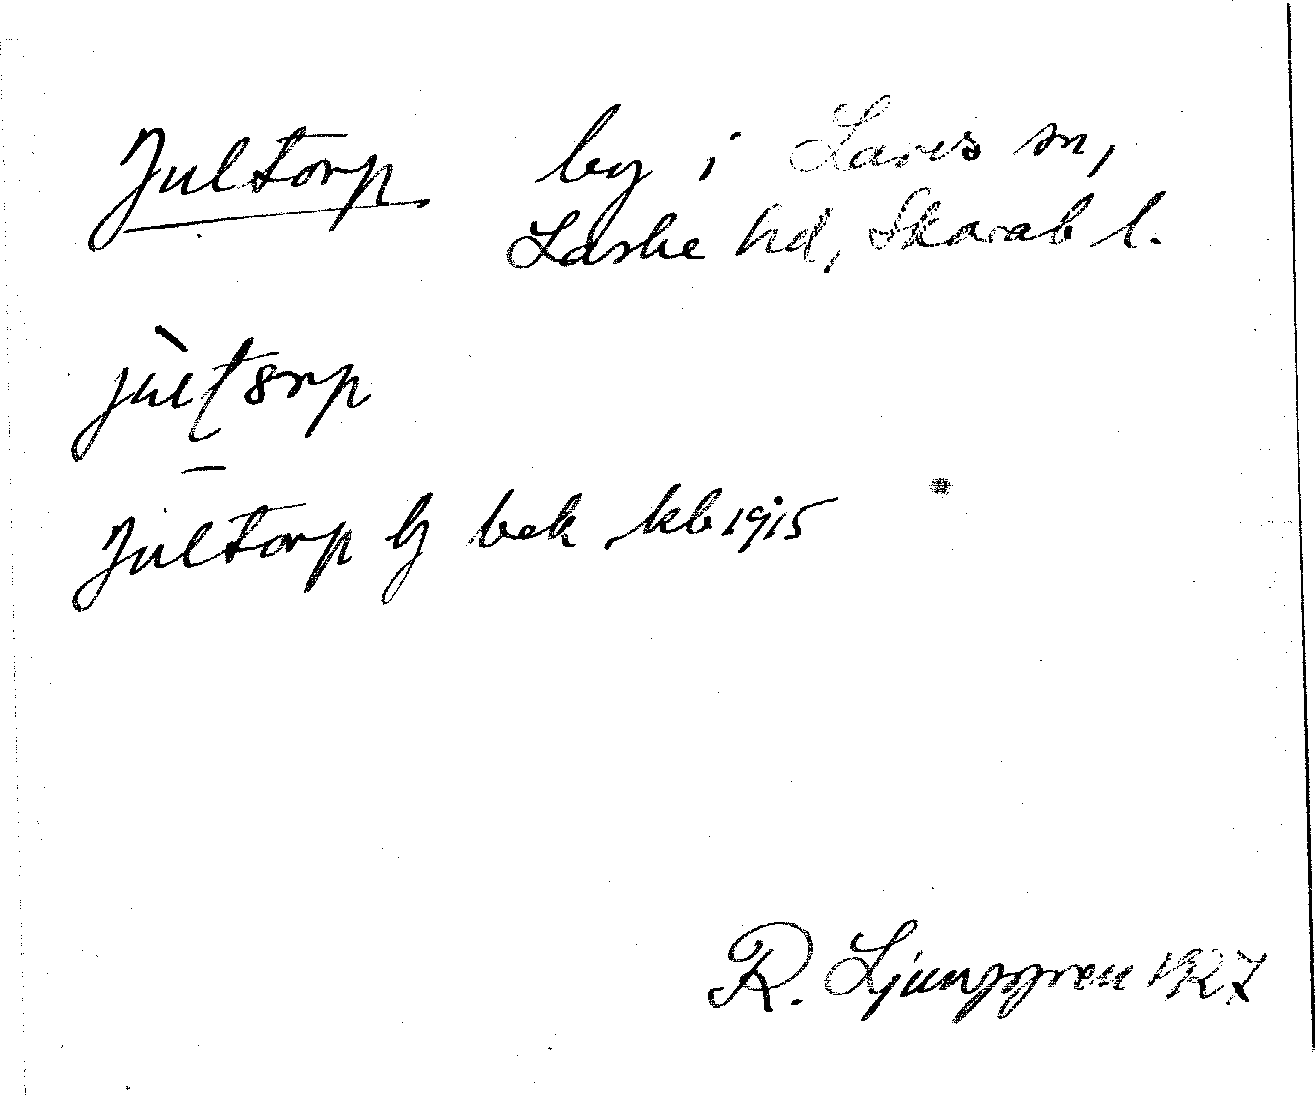 Jultorp by i Laves sn,
Laske hd, Skarab l.
Jultorp bg bek kb 1915
R. Ljunggren 1927